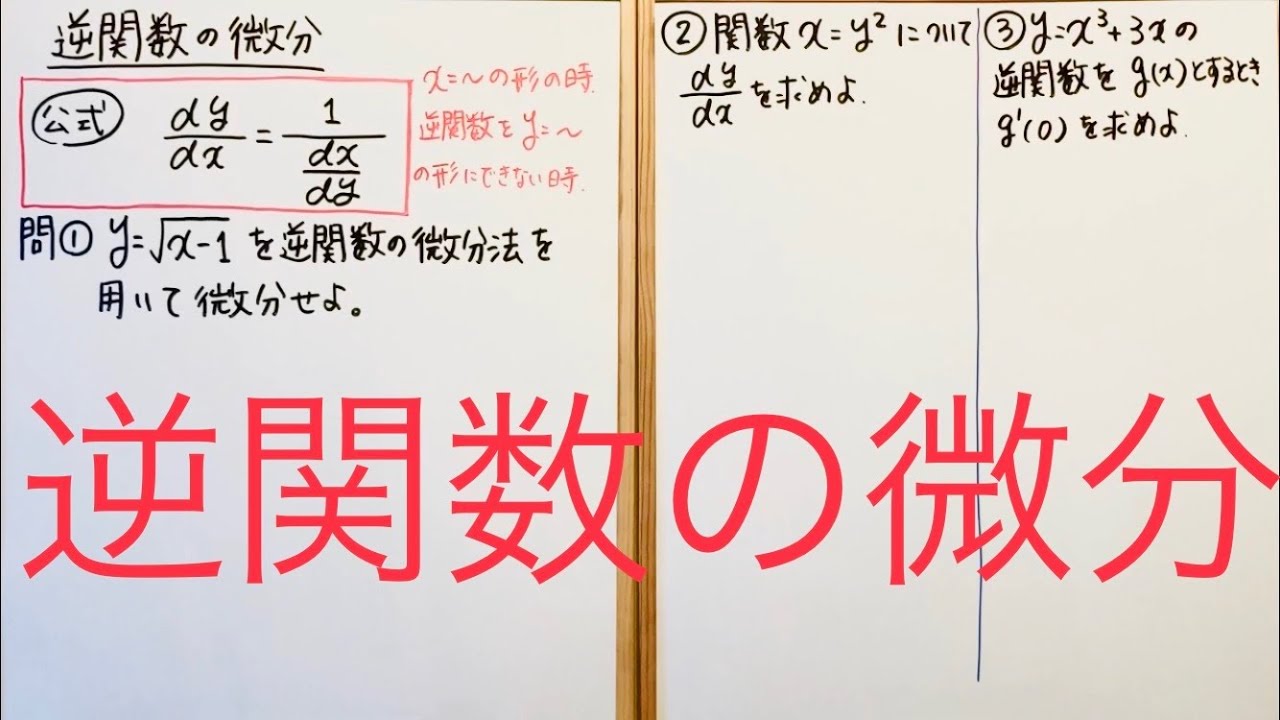 逆関数の微分
公式 dy/dx = 1/(dx/dy)
x=〜の形の時.
逆関数をy=〜
の形にできない時.
問① y=√(x-1) を逆関数の微分法を
用いて微分せよ。
② 関数 x=y² について
dy/dx を求めよ.
③ y=x³+3xの
逆関数を g(x)とするとき,
g'(0)を求めよ.
逆関数の微分